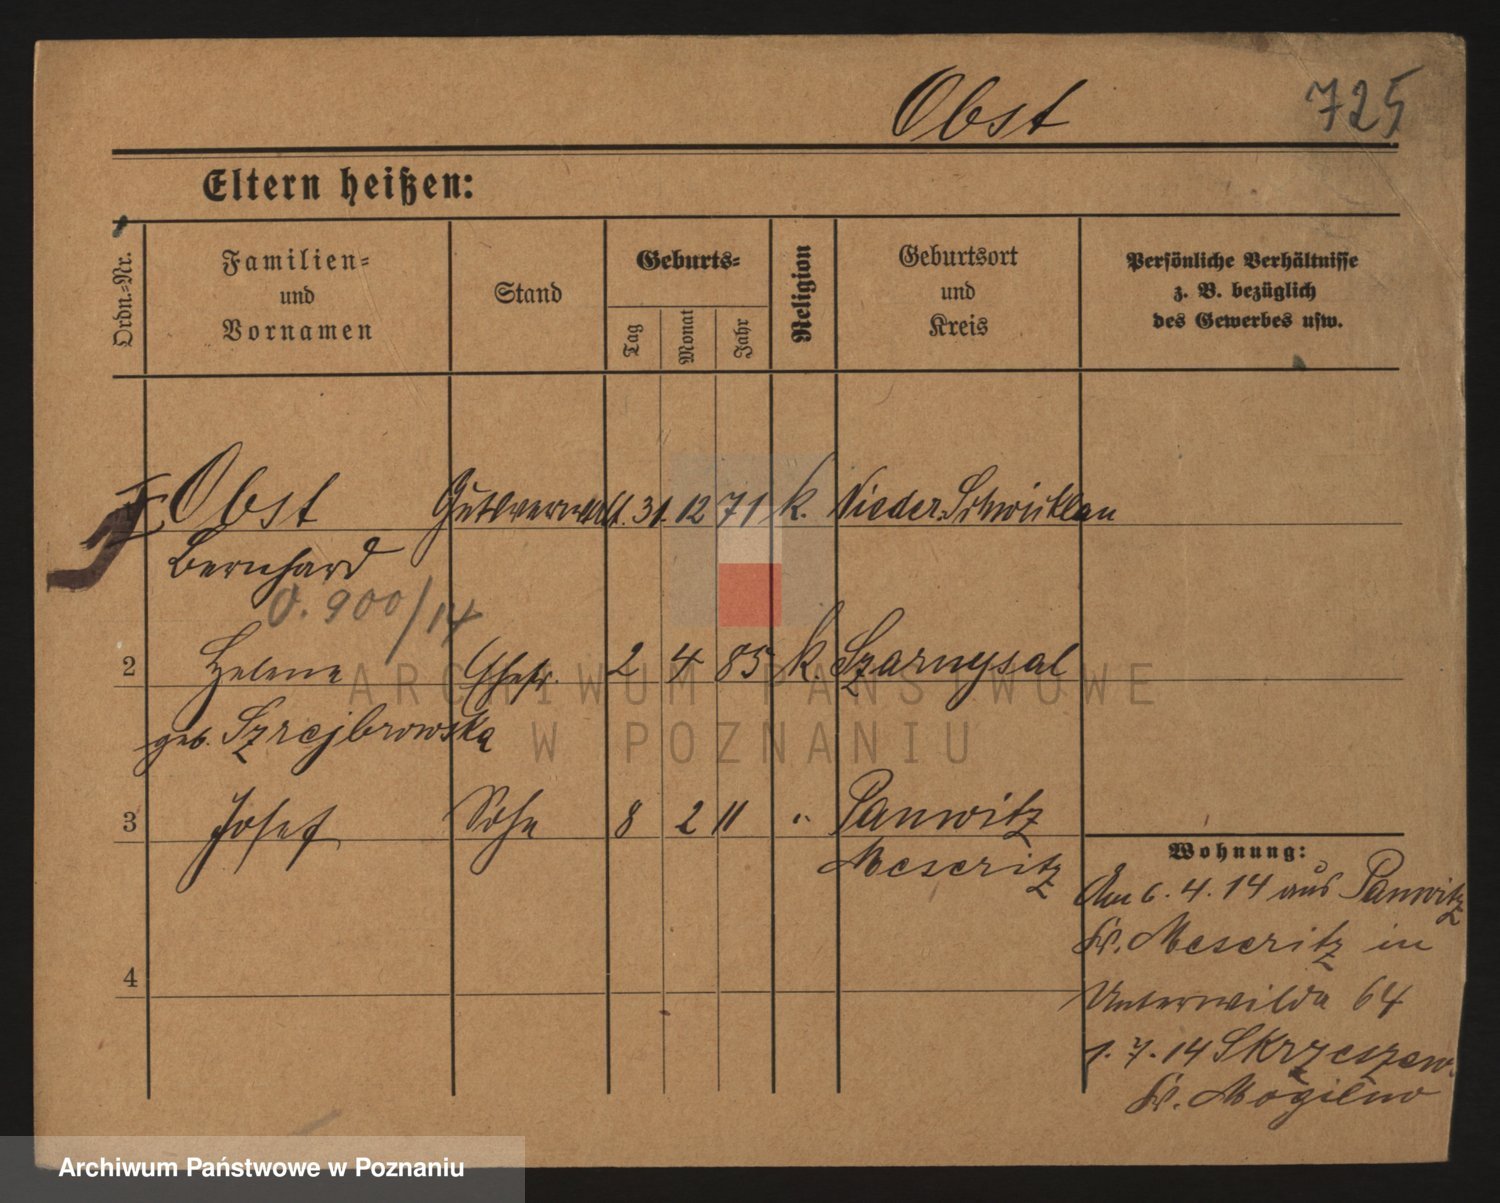 Obst 725
Eltern heißen:
Ordn.-Nr.
Familien-
und
Vornamen
Stand
Geburts-
Tag
Monat
Jahr
Religion
Geburtsort
und
Kreis
Persönliche Verhältnisse
z. B. bezüglich
des Gewerbes usw.
Obst Gutsverwalt. 31. 12 71 k. Nieder.Schwirklan
Bernhard
O. 900/14
2 Helene Ehefr. 2 4 85 k. Szarnysal
geb. Szrejbrowska
3 Josef Sohn 8 2 11 " Panwitz
Meseritz
4
Wohnung:
Am 6.4.14 aus Panwitz
Kr. Meseritz in
Unterwilda 64
1.7.14 Skrzeszew.
Kr. Mogilno
ARCHIWUM PAŃSTWOWE
W POZNANIU
Archiwum Państwowe w Poznaniu